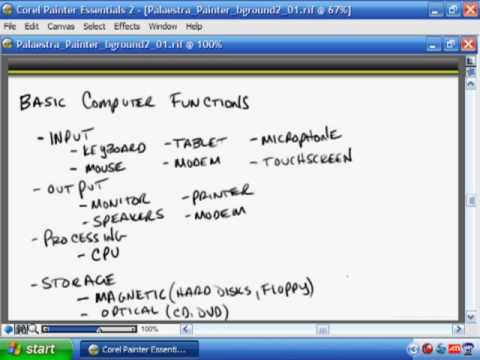 Corel Painter Essentials 2 - [Palaestra_Painter_bground2_01.rif @ 67%]
File Edit Canvas Select Effects Movie Window Help
Palaestra_Painter_bground2_01.rif @ 100%
BASIC COMPUTER FUNCTIONS
- INPUT
- KEYBOARD - TABLET - MICROPHONE
- MOUSE - MODEM - TOUCHSCREEN
- OUTPUT
- MONITOR - PRINTER
- SPEAKERS - MODEM
- PROCESSING
- CPU
- STORAGE
- MAGNETIC (HARD DISKS, FLOPPY)
- OPTICAL (CD, DVD)
100%
start Corel Painter Essenti...